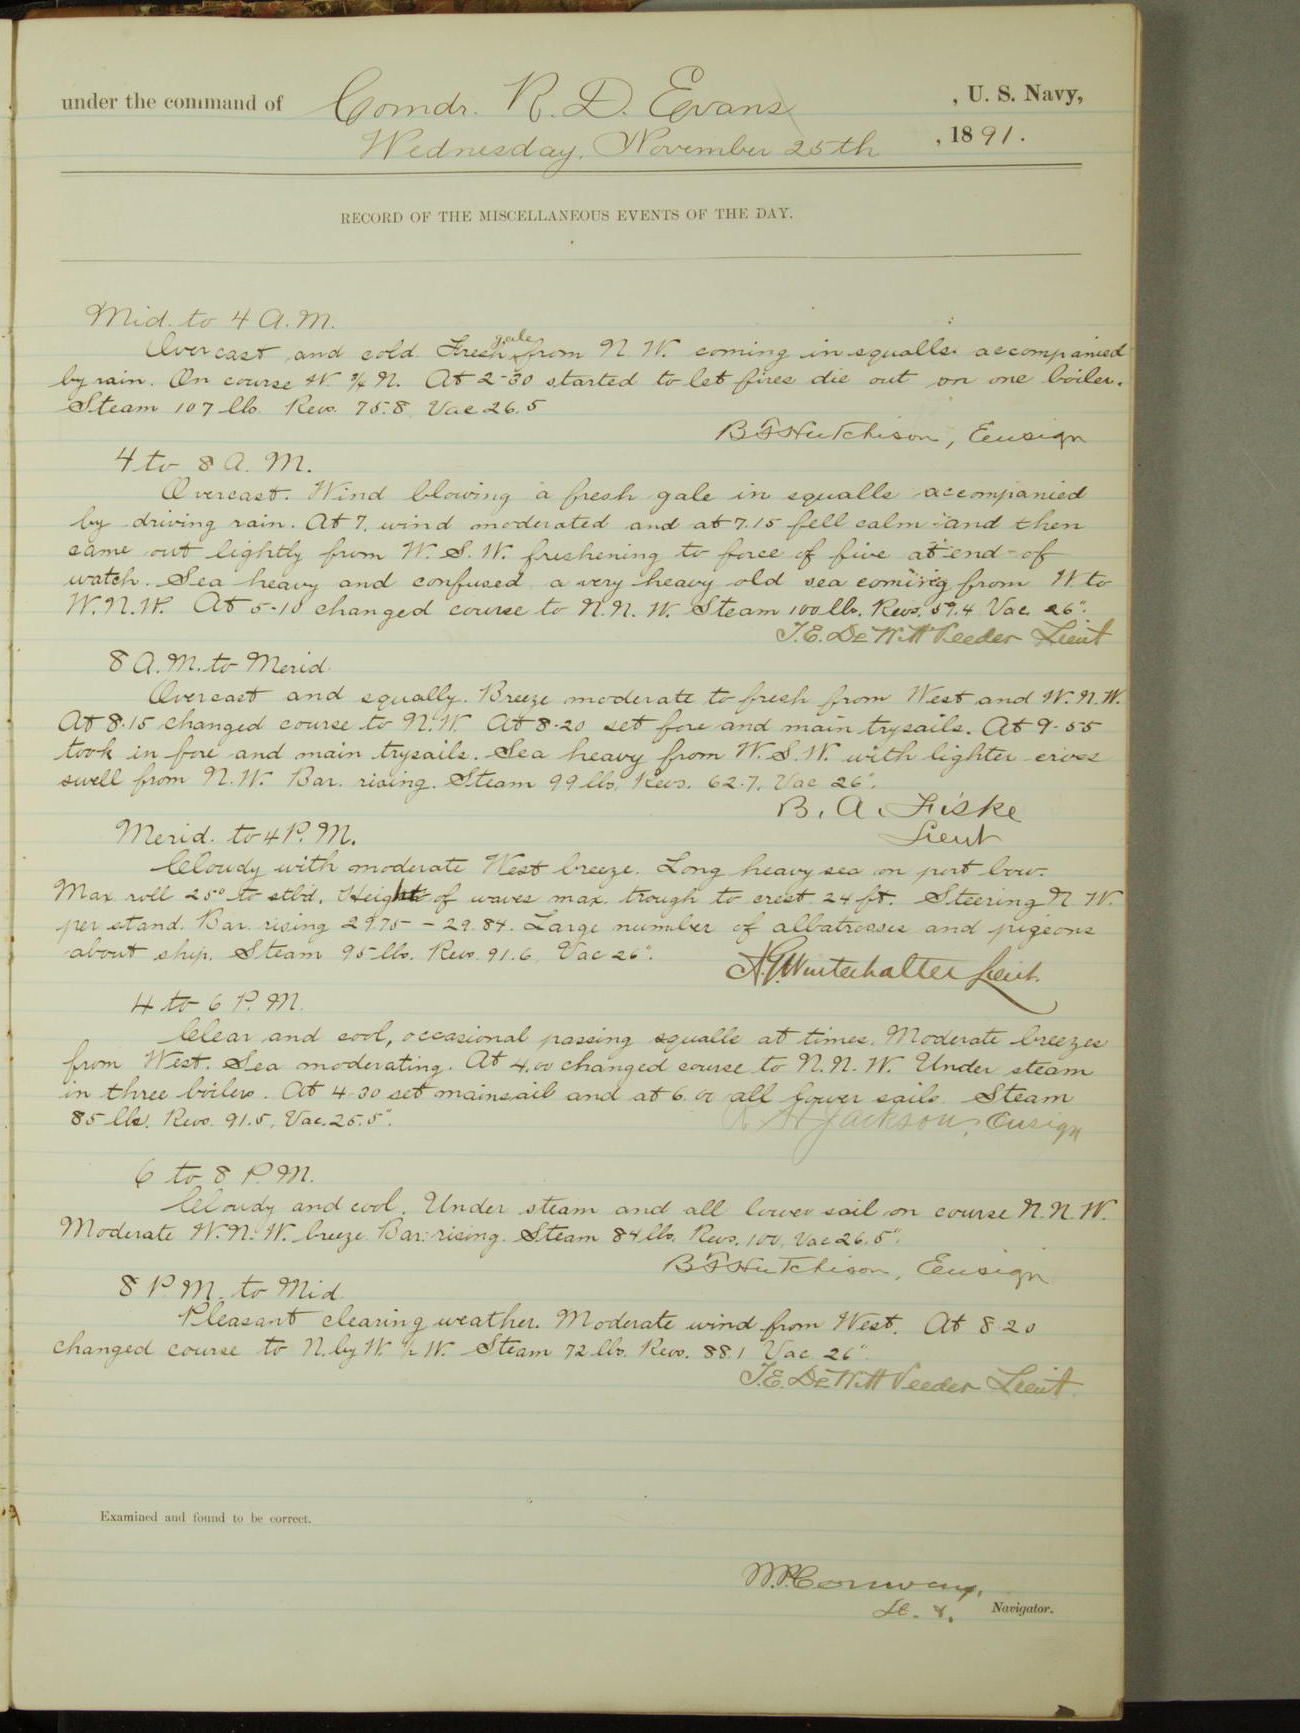 under the command of Comdr. R. D. Evans, U. S. Navy,
Wednesday, November 25th, 1891.
RECORD OF THE MISCELLANEOUS EVENTS OF THE DAY.
Mid. to 4 A.M.
Overcast and cold. Fresh gale from N. W. coming in squalls accompanied
by rain. On course W. ¾ N. At 2-30 started to let fires die out on one boiler.
Steam 107 lbs. Revs. 75.8. Vac 26.5
B F Hutchison, Ensign
4 to 8 A. M.
Overcast. Wind blowing a fresh gale in squalls accompanied
by driving rain. At 7, wind moderated and at 7.15 fell calm and then
came out lightly from W. S. W. freshening to force of five at end of
watch. Sea heavy and confused, a very heavy old sea coming from W. to
W.N.W. At 5-10 changed course to N.N.W. Steam 100 lbs. Revs. 59.4 Vac. 26".
T.E. DeWitt Veeder Lieut
8 A.M. to Merid.
Overcast and squally. Breeze moderate to fresh from West and W.N.W.
At 8.15 changed course to N.W. At 8-20 set fore and main trysails. At 9-55
took in fore and main trysails. Sea heavy from W.S.W. with lighter cross
swell from N.W. Bar. rising. Steam 99 lbs, Revs. 62.7, Vac 26".
B. A. Fiske
Lieut
Merid. to 4 P.M.
Cloudy with moderate West breeze. Long heavy sea on port bow.
Max roll 25° to stbd. Height of waves max. trough to crest 24 ft. Steering N. W.
per stand. Bar. rising 29.75 - 29.84. Large number of albatrosses and pigeons
about ship. Steam 95 lbs. Revs. 91.6, Vac 26".
A.G. Winterhalter Lieut.
4 to 6 P.M.
Clear and cool, occasional passing squalls at times. Moderate breezes
from West. Sea moderating. At 4.00 changed course to N.N.W. Under steam
in three boilers. At 4-30 set mainsail and at 6.00 all lower sails. Steam
85 lbs. Revs. 91.5, Vac. 25.5".
R H Jackson, Ensign
6 to 8 P.M.
Cloudy and cool. Under steam and all lower sail on course N.N.W.
Moderate W.N.W. breeze Bar. rising. Steam 84 lbs. Revs. 100, Vac 26.5".
B F Hutchison, Ensign
8 P.M. to Mid.
Pleasant clearing weather. Moderate wind from West. At 8-20
changed course to N. by W. ½ W. Steam 72 lbs. Revs. 88.1 Vac. 26".
T.E. DeWitt Veeder Lieut.
Examined and found to be correct.
W.P. Conway,
Navigator.